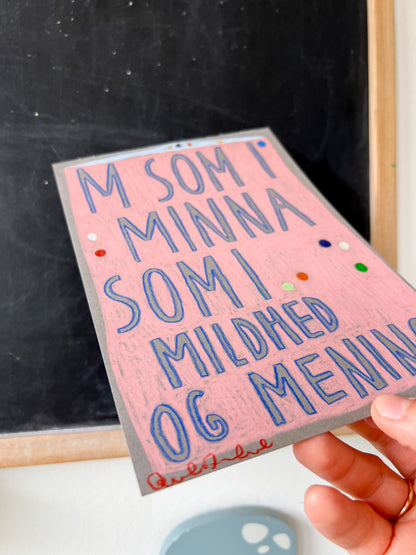 M SOM I
MINNA
SOM I
MILDHED
OG MENING